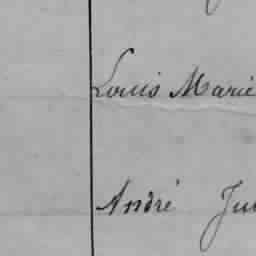 Louis Marie
André